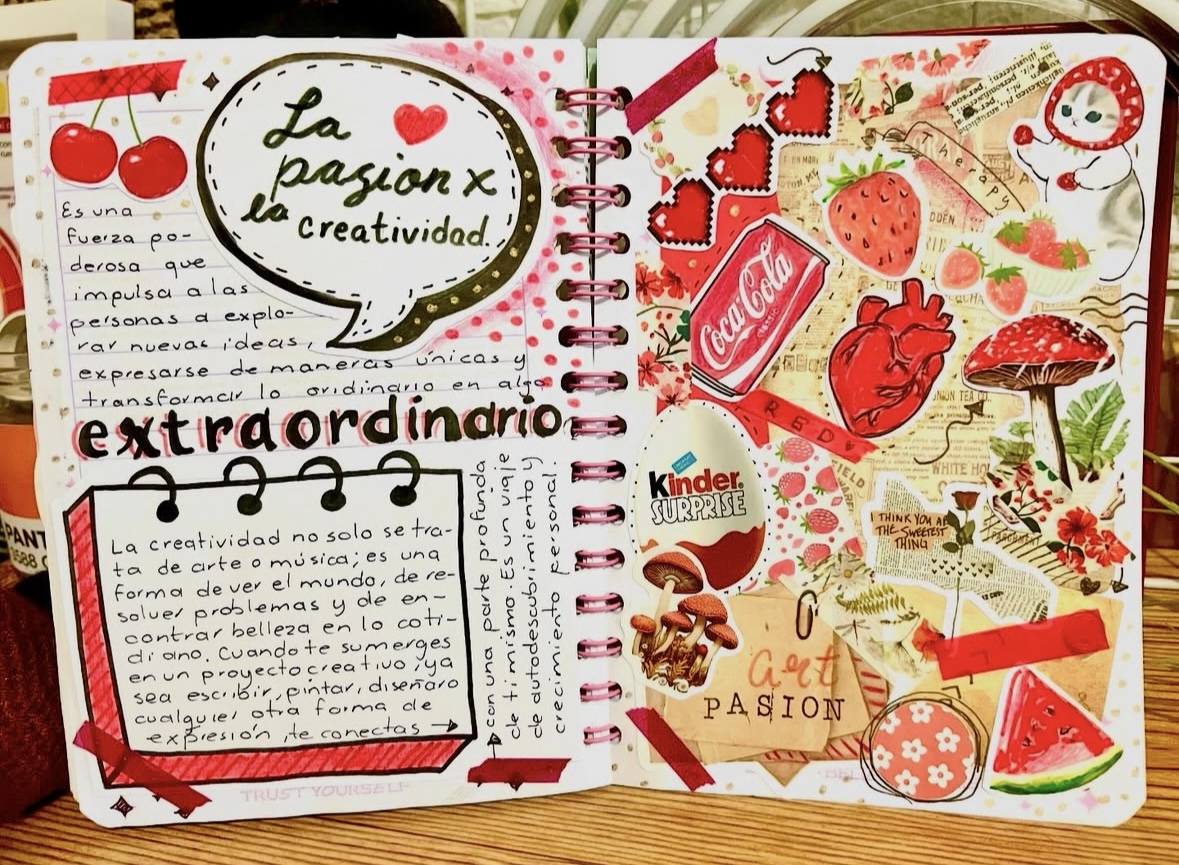 La
pasion x
la creatividad.
Es una
fuerza po-
derosa que
impulsa a las
personas a explo-
rar nuevas ideas,
expresarse de maneras únicas y
transformar lo oridinario en algo
extraordinario
La creatividad no solo se tra-
ta de arte o música; es una
forma de ver el mundo, de re-
solver problemas y de en-
contrar belleza en lo coti-
diano. Cuando te sumerges
en un proyecto creativo, ya
sea escribir, pintar, diseñar o
cualquier otra forma de
expresión, te conectas →
con una parte profunda
de ti mismo. Es un viaje
de autodescubrimiento y
crecimiento personal.
TRUST YOURSELF
Therapy
Coca-Cola
classic
RED
Kinder
SURPRISE
UNION TEA CO.
WHITE HO
FIELD
THINK YOU ARE
THE SWEETEST
THING
art
PASION
PANT